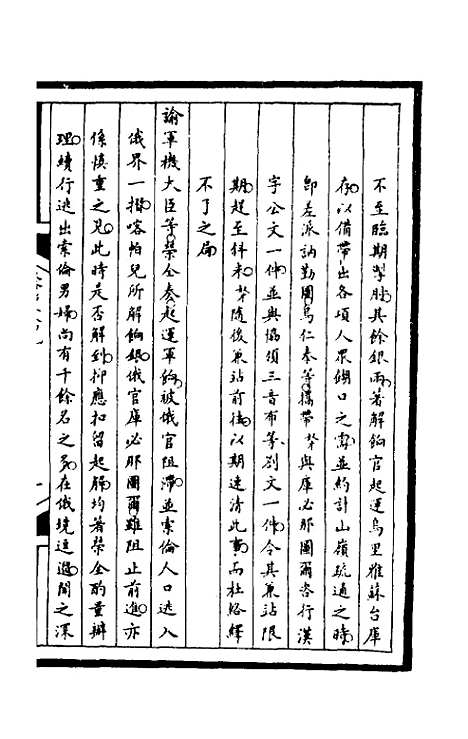 不至臨期掣肘其餘銀兩著解餉官起運烏里雅蘇台庫
存以備帶出各項人眾餬口之需並約計山嶺疏通之時
卽差派訥勤圖烏仁泰等攜帶奴才與庫必那圖爾咨行漢
字公文一件並與協領三音布等劄文一件令其兼站限
期趕至科來奴才隨後兼站前往以期速清此事而杜絡繹
不了之局
諭軍機大臣等榮全奏起運軍餉被俄官阻滯並索倫人口逃入
俄界一摺喀帕兒所解餉銀俄官庫必那圖爾雖阻止前進亦
係慎重之見此時是否解到抑應扣留起解均著榮全酌量辦
理續行逃出索倫男婦尚有千餘名之多在俄境逗遛聞之深